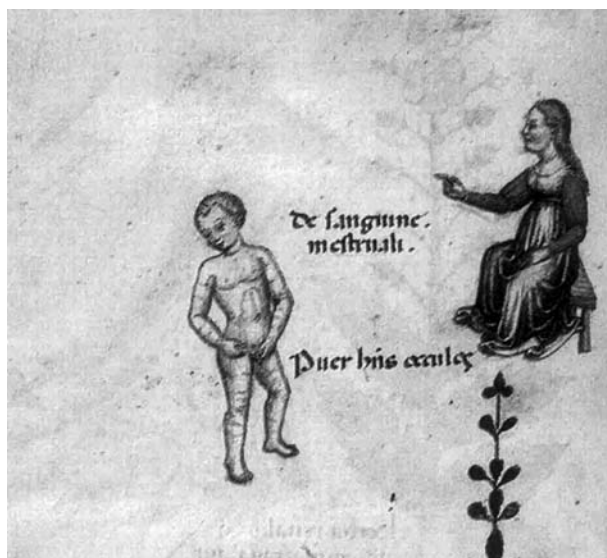 De sanguine.
mestruali.
Puer hn̄s